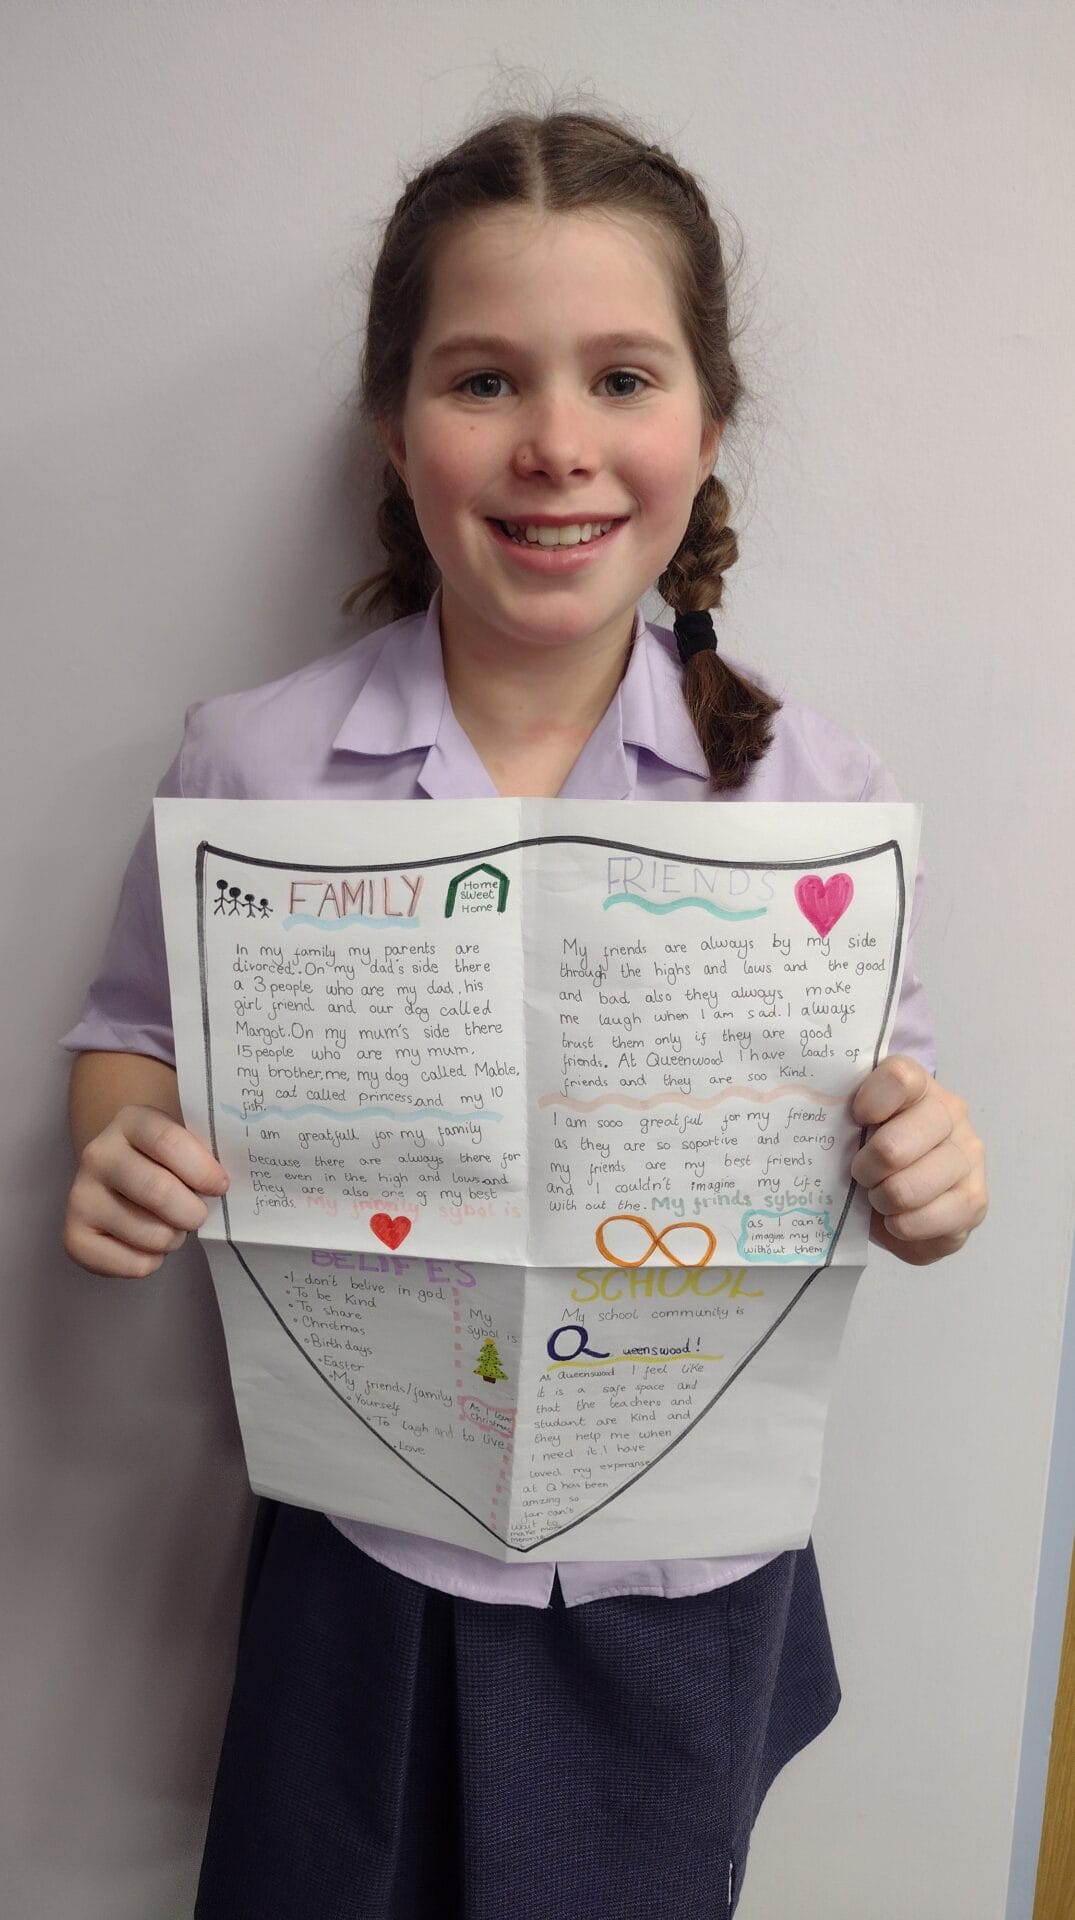 FAMILY
Home
Sweet
Home
In my family my parents are
divorced. On my dad's side there
a 3 people who are my dad, his
girl friend and our dog called
Margot. On my mum's side there
15 people who are my mum,
my brother, me, my dog called Mable,
my cat called princess, and my 10
fish.
I am greatfull for my family
because there are always there for
me even in the high and lows and
they are also one of my best
friends. My family sybol is
FRIENDS
My friends are always by my side
through the highs and lows and the good
and bad also they always make
me laugh when I am sad. I always
trust them only if they are good
friends. At Queenwood I have loads of
friends and they are soo kind.
I am sooo greatful for my friends
as they are so soportive and caring
my friends are my best friends
and I couldn't imagine my life
with out the. My frinds sybol is
as I can't
imagine my life
without them.
BELIFES
•I don't belive in god
•To be Kind
•To share
•Christmas
•Birthdays
•Easter
•My friends/family
•Yourself
•To lagh and to live
•Love
My
sybol is
As I love
christmas
SCHOOL
My school community is
Queenswood!
At Queenswood I feel like
it is a safe space and
that the teachers and
student are kind and
they help me when
I need it. I have
loved my experanse
at Q has been
amzing so
far can't
wait to
make more